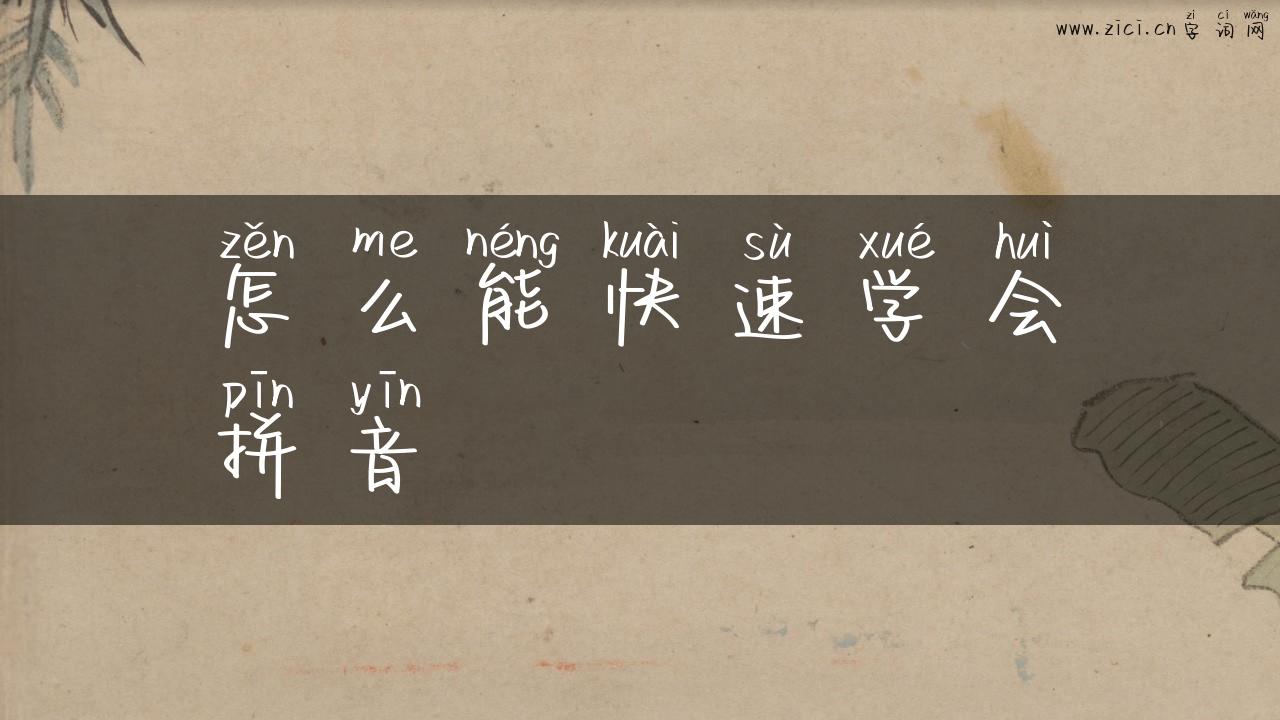 zì cí wǎng
www.zici.cn 字 词 网
zěn me néng kuài sù xué huì
怎 么 能 快 速 学 会
pīn yīn
拼 音